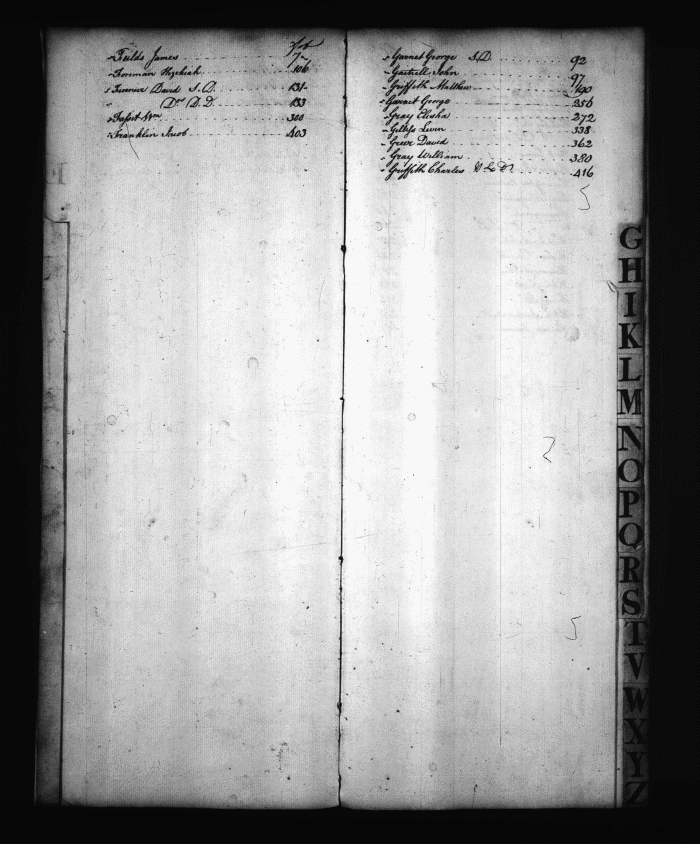 Fol
Feilds James 7
Foreman Hezekiah 106
David S. D. 131
Do D. D. 133
Fassit Wm 300
Franklin Jacob 403
Garnet George S.D. 92
Gastrell John 97
Griffeth Matthew 190
Garnet George 256
Gray Elisha 272
Gilliss Levin 338
Greer David 362
Gray William 380
Griffeth Charles 416
G
H
I
K
L
M
N
O
P
Q
R
S
T
V
W
X
Y
Z